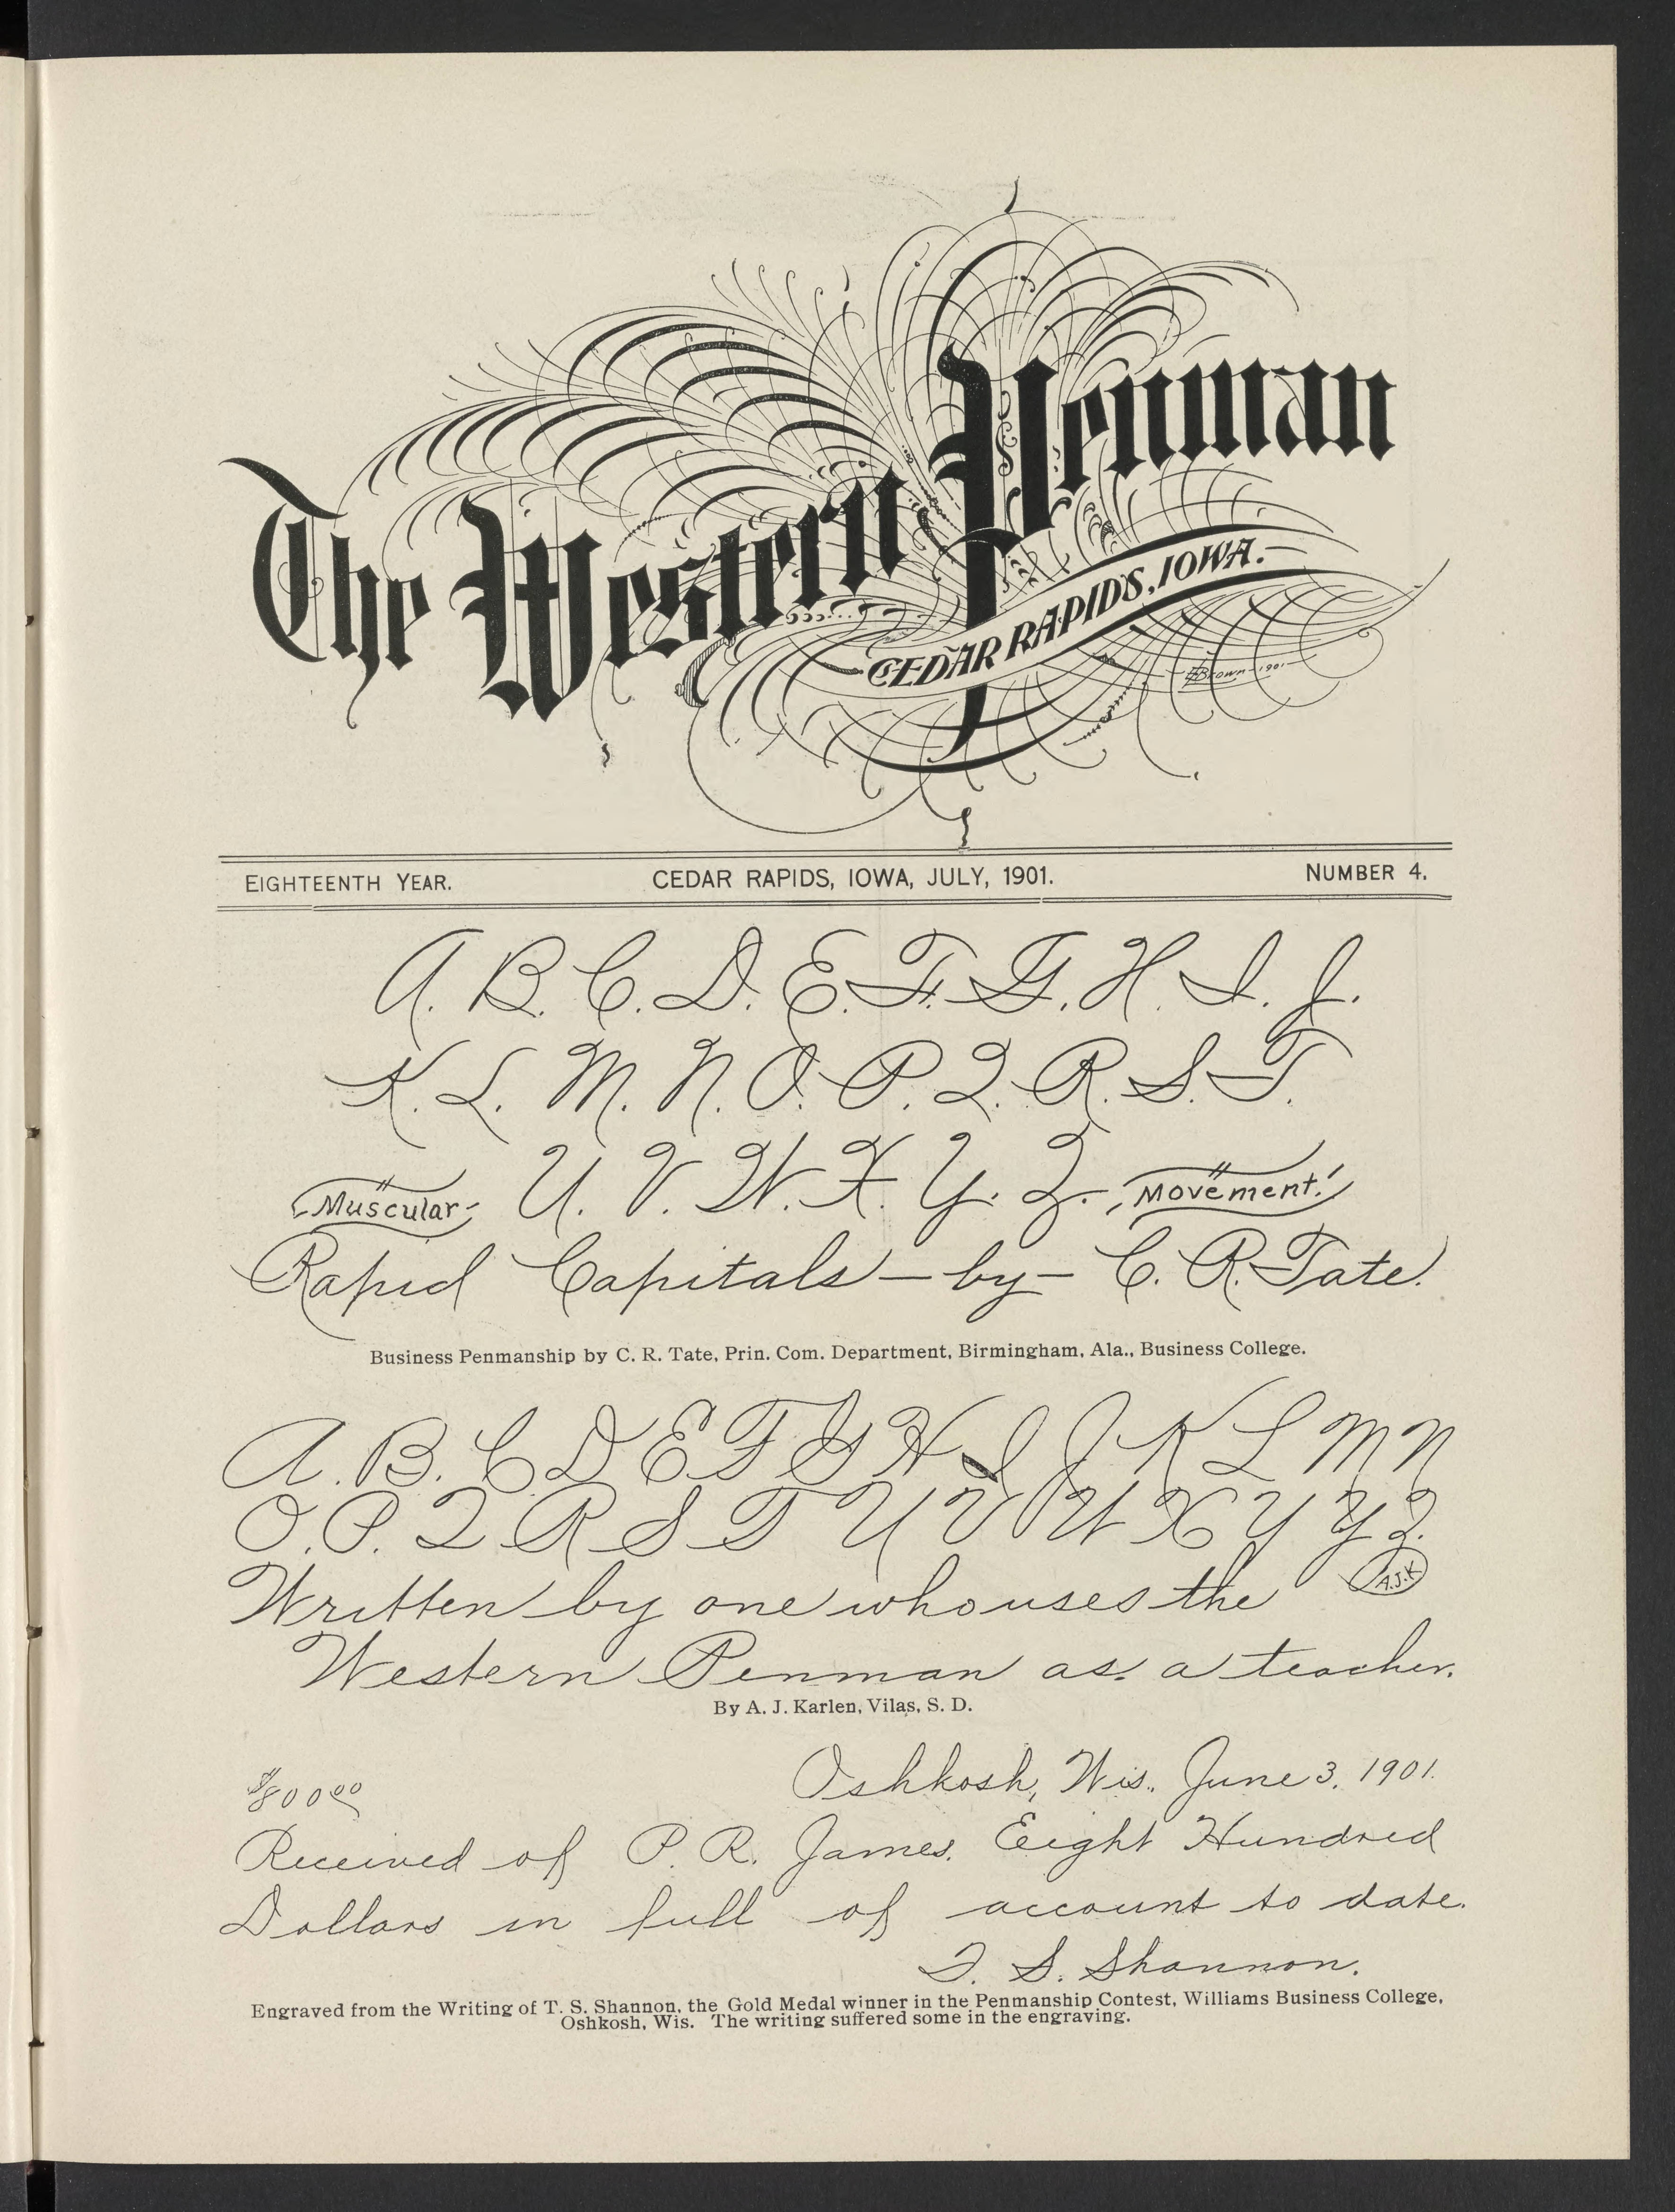 The Western Penman
CEDAR RAPIDS, IOWA.
Brown-1901-
EIGHTEENTH YEAR. CEDAR RAPIDS, IOWA, JULY, 1901. NUMBER 4.
A. B. C. D. E. F. G. H. I. J.
K. L. M. N. O. P. Q. R. S. T.
Muscular U. V. W. X. Y. Z. Movement!
Rapid Capitals – by – C. R. Tate.
Business Penmanship by C. R. Tate, Prin. Com. Department, Birmingham, Ala., Business College.
A. B. C D E F G H I J K L M N
O. P. Q R S T U V W X Y Y Z.
A.J.K
Written by one who uses the
Western Penman as. a teacher.
By A. J. Karlen, Vilas, S. D.
Oshkosh, Wis., June 3, 1901.
$800 00
Received of P. R. James, Eeight Hundred
Dollars in full of account to date.
T. S. Shannon.
Engraved from the Writing of T. S. Shannon, the Gold Medal winner in the Penmanship Contest, Williams Business College,
Oshkosh, Wis. The writing suffered some in the engraving.